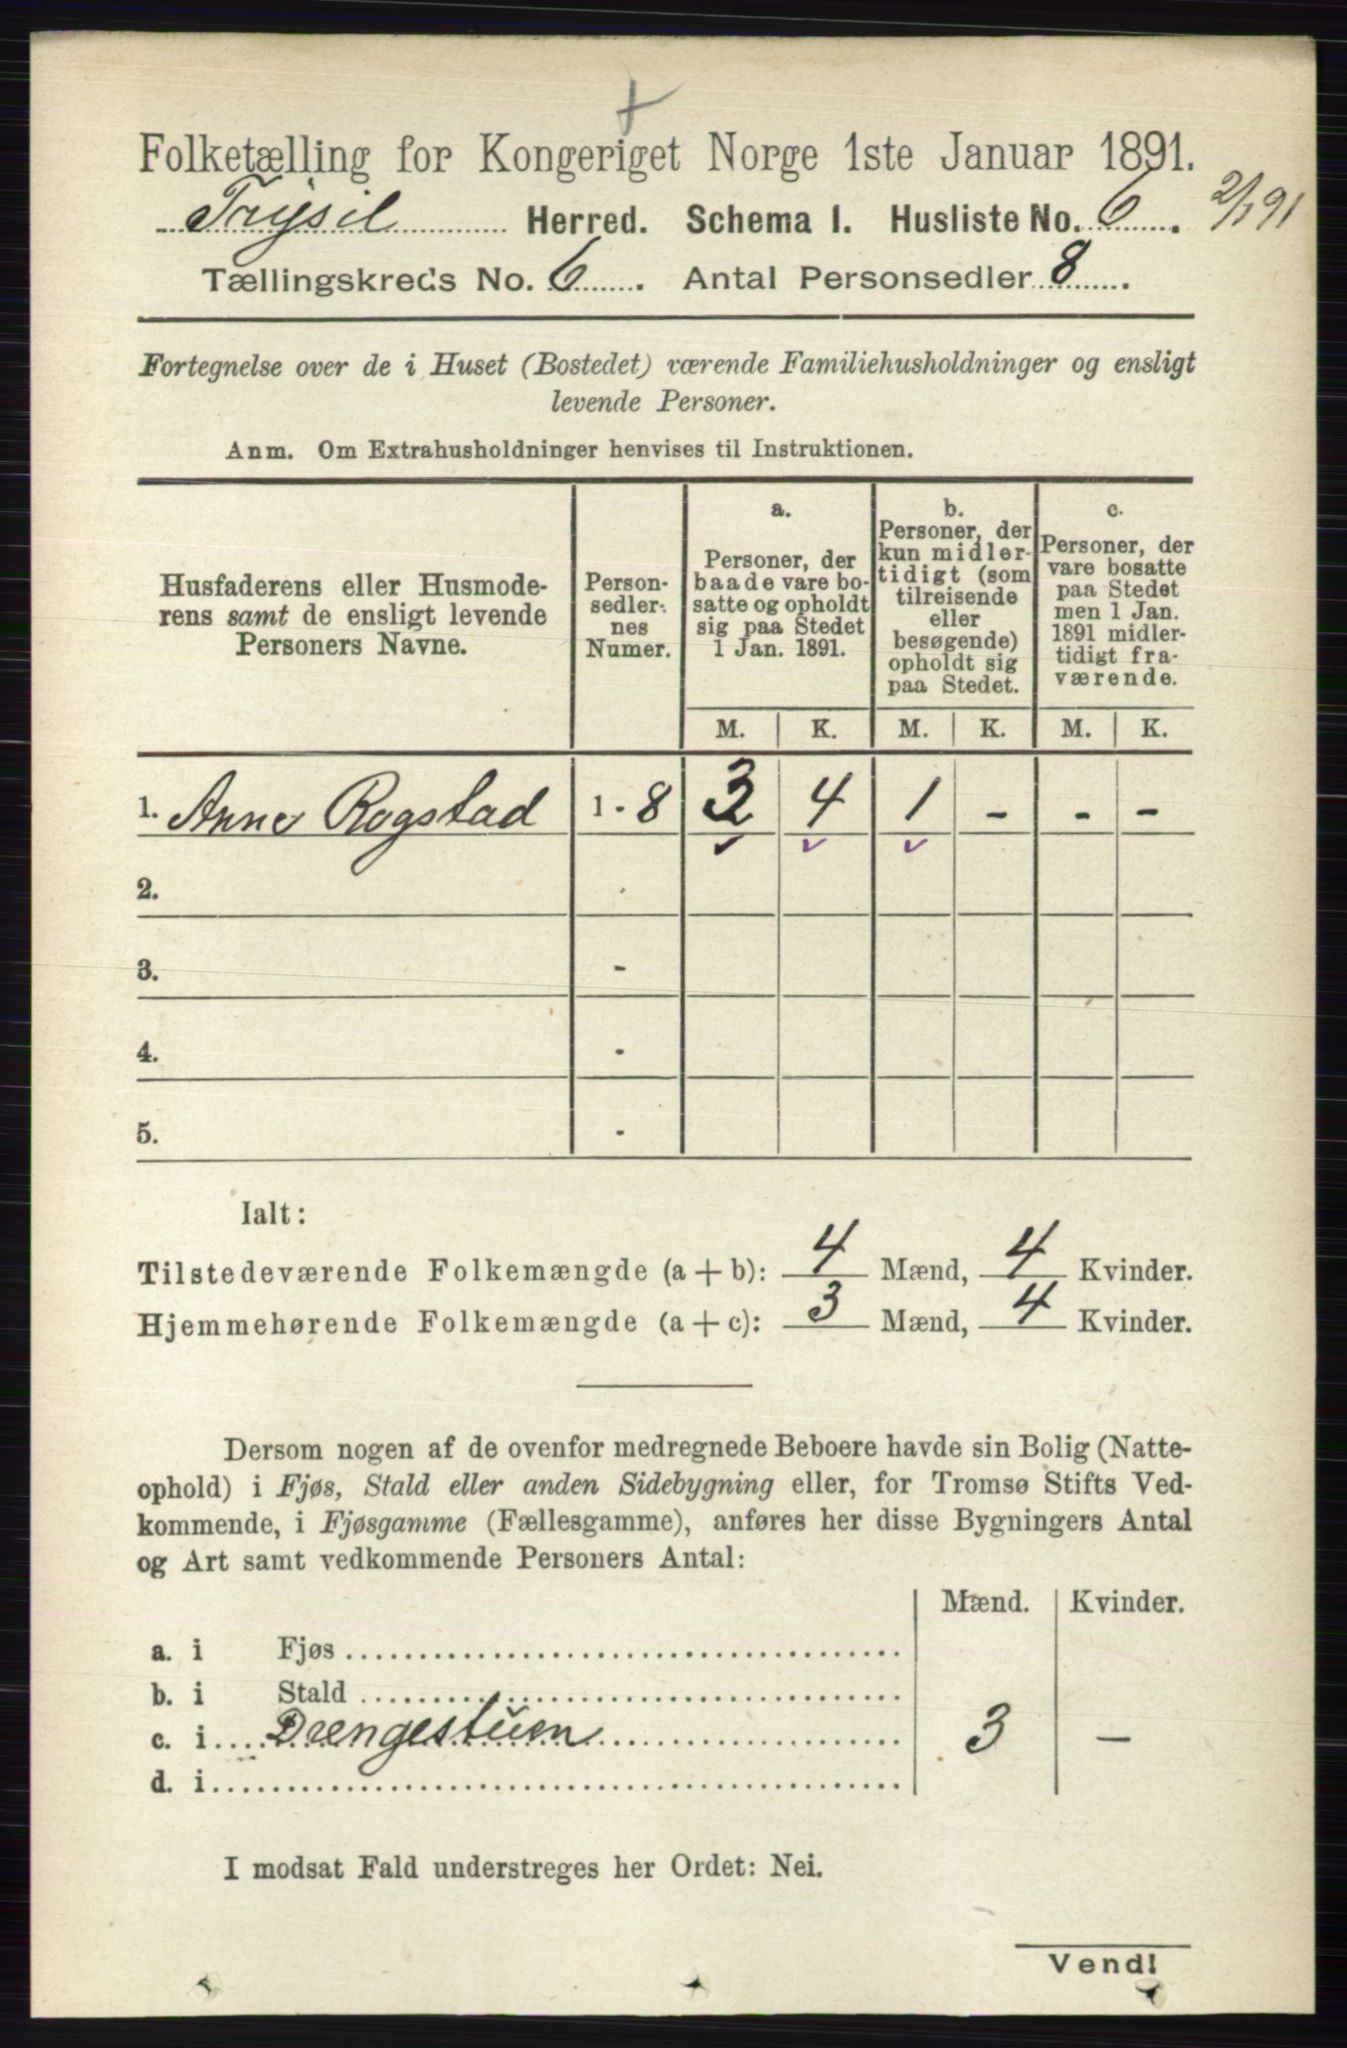 Folketælling for Kongeriget Norge 1ste Januar 1891.
Trysil Herred. Schema 1. Husliste No. 6. 2/1 91
Tællingskreds No. 6. Antal Personsedler 8.
Fortegnelse over de i Huset (Bostedet) værende Familiehusholdninger og ensligt
levende Personer.
Anm. Om Extrahusholdninger henvises til Instruktionen.
Husfaderens eller Husmode-
rens samt de ensligt levende
Personers Navne.
Person-
sedler-
nes
Numer.
a.
Personer, der
baade vare bo-
satte og opholdt
sig paa Stedet
1 Jan. 1891.
b.
Personer, der
kun midler-
tidigt (som
tilreisende
eller
besøgende)
opholdt sig
paa Stedet.
c.
Personer, der
vare bosatte
paa Stedet
men 1 Jan.
1891 midler-
tidigt fra-
værende.
M. K. M. K. M. K.
1. Anne Rogstad 1 - 8 3 4 1 - - -
2. -
3. -
4. -
5. -
Ialt:
Tilstedeværende Folkemængde (a + b): 4 Mænd, 4 Kvinder.
Hjemmehørende Folkemængde (a + c): 3 Mænd, 4 Kvinder.
Dersom nogen af de ovenfor medregnede Beboere havde sin Bolig (Natte-
ophold) i Fjøs, Stald eller anden Sidebygning eller, for Tromsø Stifts Ved-
kommende, i Fjøsgamme (Fællesgamme), anføres her disse Bygningers Antal
og Art samt vedkommende Personers Antal:
Mænd. Kvinder.
a. i Fjøs
b. i Stald
c. i Drengestuen 3 -
d. i
I modsat Fald understreges her Ordet: Nei.
Vend!